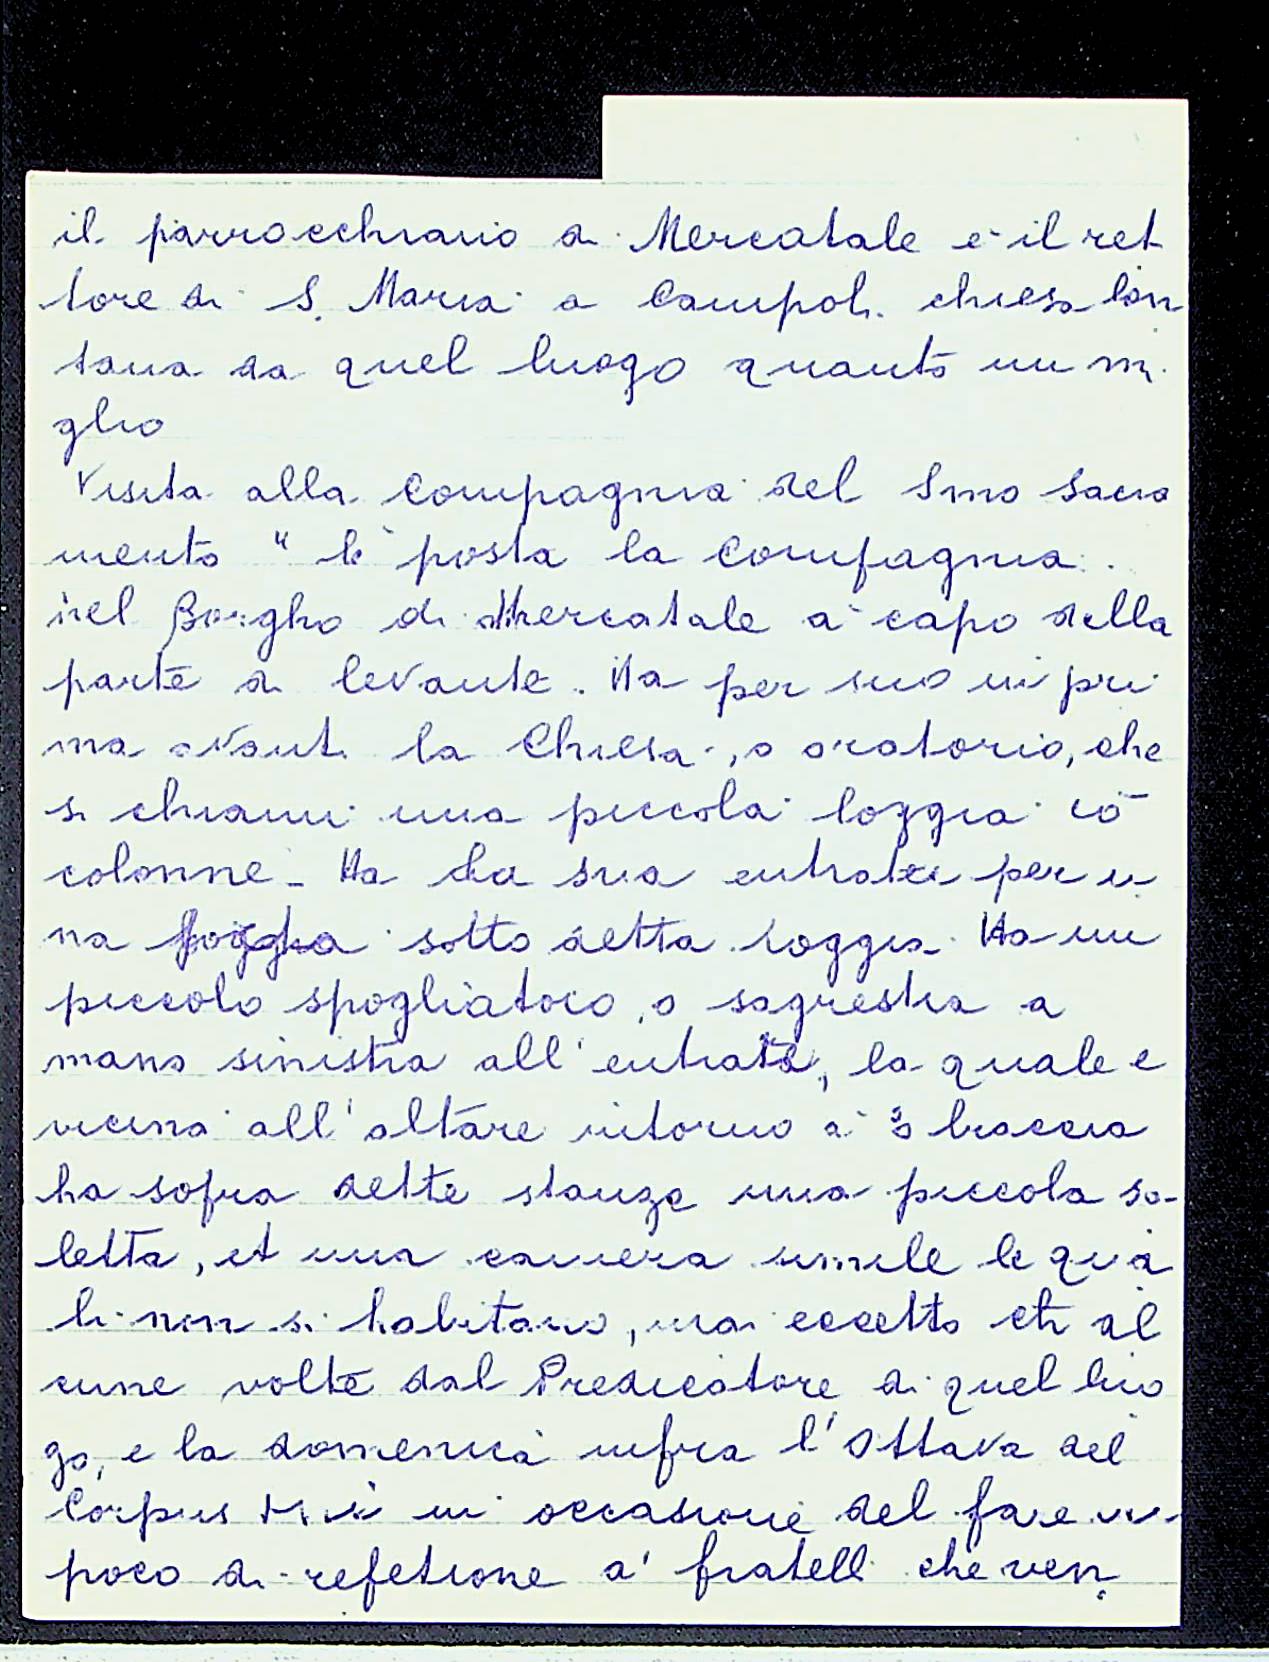 il parrocchiano di Mercatale è il ret
tore di S. Maria a Campoli chiesa lon
tana da quel luogo quanto un mi
glio
Visita alla Compagnia del Smo Sacra
mento " è posta la Compagnia
nel Borgho di Mercatale a capo della
parte di levante. Ha per suo in pri
ma avanti la Chiesa, o oratorio, che
si chiami una piccola loggia cō
colonne - Ha la sua entrata per u
na sotto detta loggia. Ha un
piccolo spogliatoio, o sagrestia a
mano sinistra all'entrata, la quale è
vicina all'altare intorno a 3 braccia
ha sopra dette stanze una piccola sa-
letta, et una camera simile le qua
li non si habitano, mai eccetto ch al
cune volte dal Predicatore di quel luo
go, e la domenica infra l'Ottava del
Corpus in occasione del fare un
poco di refetione a' fratelli che ven